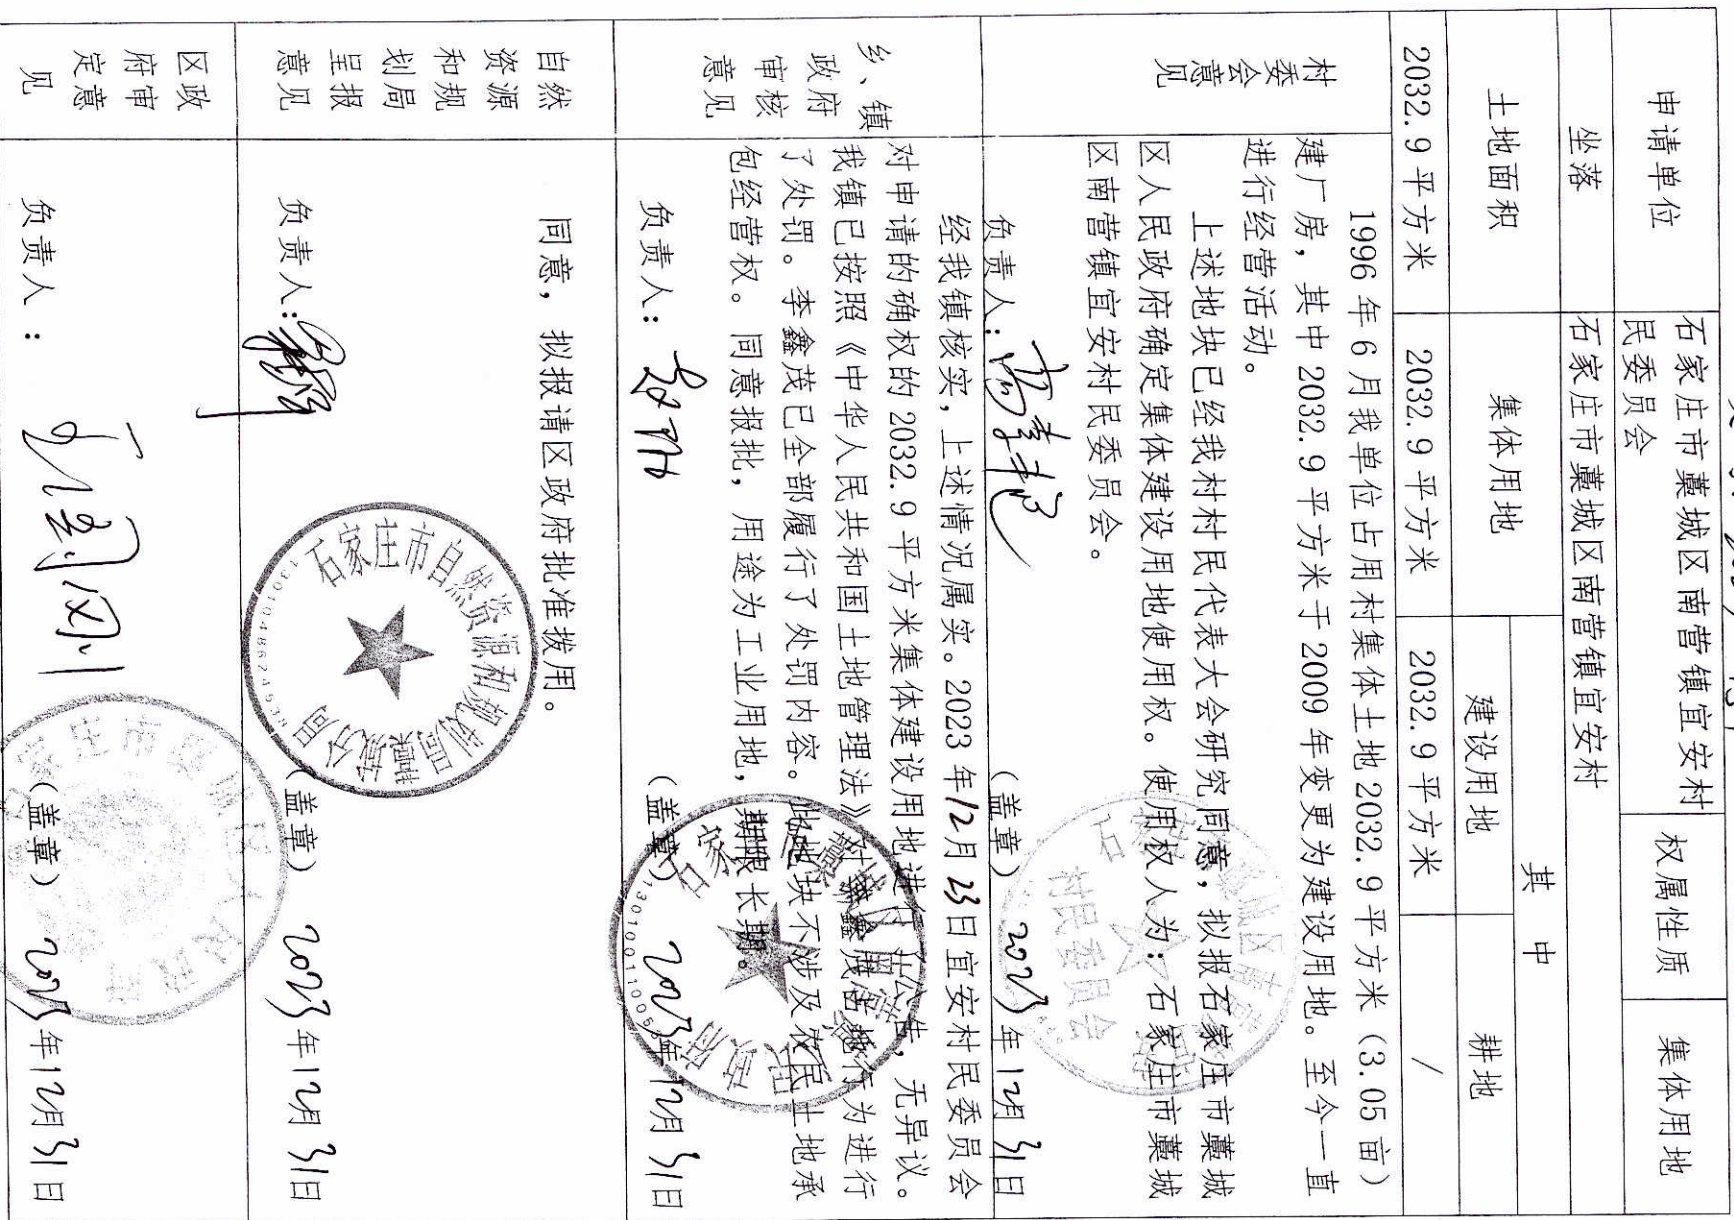 申请单位 石家庄市藁城区南营镇宜安村民委员会 权属性质 集体用地
坐落 石家庄市藁城区南营镇宜安村
土地面积 集体用地 其中
建设用地 耕地
2032.9 平方米 2032.9 平方米 2032.9 平方米 /
村委会意见
1996 年 6 月我单位占用村集体土地 2032.9 平方米（3.05 亩）
建厂房，其中 2032.9 平方米于 2009 年变更为建设用地。至今一直
进行经营活动。
上述地块已经我村村民代表大会研究同意，拟报石家庄市藁城
区人民政府确定集体建设用地使用权。使用权人为：石家庄市藁城
区南营镇宜安村民委员会。
负责人： （盖章） 2023年12月31日
村民委员会
乡、镇政府审核意见
经我镇核实，上述情况属实。2023 年12月23日宜安村民委员会
对申请的确权的 2032.9 平方米集体建设用地进行了公告，无异议。
我镇已按照《中华人民共和国土地管理法》对李鑫茂占地行为进行
了处罚。李鑫茂已全部履行了处罚内容。此地块不涉及农民土地承
包经营权。同意报批，用途为工业用地，期限长期。
负责人： （盖章） 2023年12月31日
1301001100
自然资源和规划局呈报意见
同意，拟报请区政府批准拨用。
负责人： （盖章） 2023年12月31日
石家庄市自然资源和规划局藁城分局
区政府审定意见
负责人： （盖章） 2023年12月31日